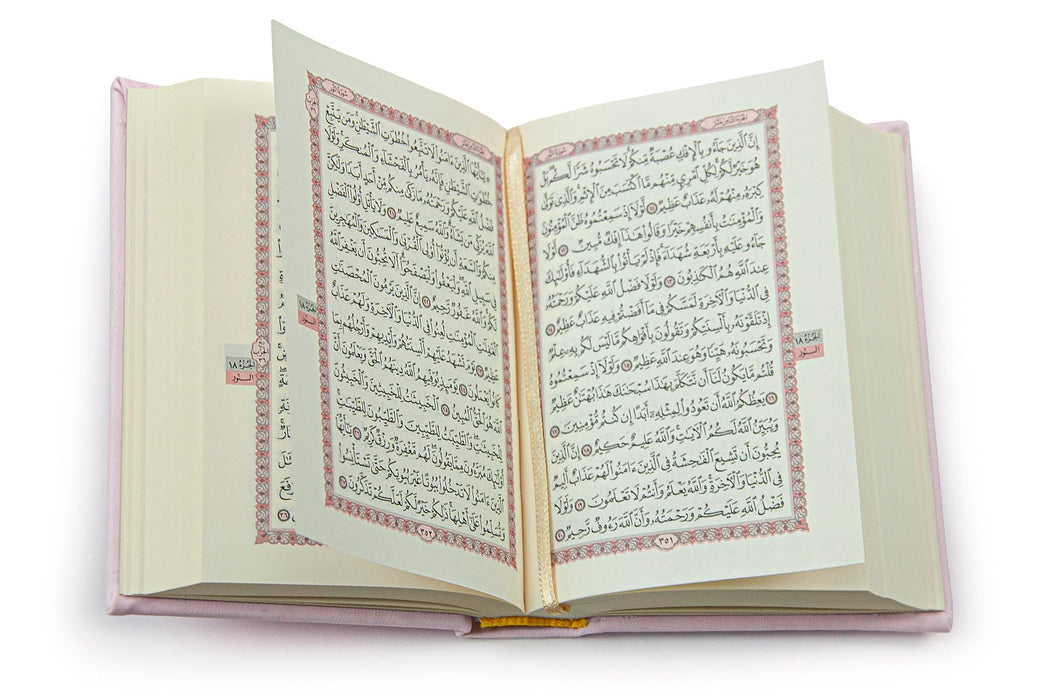 الجزء الثامن عشر
سورة النور
إِنَّ ٱلَّذِينَ جَآءُو بِٱلْإِفْكِ عُصْبَةٌ مِّنكُمْ لَا تَحْسَبُوهُ شَرًّا لَّكُم بَلْ
هُوَ خَيْرٌ لَّكُمْ لِكُلِّ ٱمْرِئٍ مِّنْهُم مَّا ٱكْتَسَبَ مِنَ ٱلْإِثْمِ وَٱلَّذِى تَوَلَّىٰ
كِبْرَهُۥ مِنْهُمْ لَهُۥ عَذَابٌ عَظِيمٌ ١١ لَّوْلَآ إِذْ سَمِعْتُمُوهُ ظَنَّ ٱلْمُؤْمِنُونَ
وَٱلْمُؤْمِنَٰتُ بِأَنفُسِهِمْ خَيْرًا وَقَالُوا۟ هَٰذَآ إِفْكٌ مُّبِينٌ ١٢ لَّوْلَا
جَآءُو عَلَيْهِ بِأَرْبَعَةِ شُهَدَآءَ فَإِذْ لَمْ يَأْتُوا۟ بِٱلشُّهَدَآءِ فَأُو۟لَٰٓئِكَ
عِندَ ٱللَّهِ هُمُ ٱلْكَٰذِبُونَ ١٣ وَلَوْلَا فَضْلُ ٱللَّهِ عَلَيْكُمْ وَرَحْمَتُهُۥ
فِى ٱلدُّنْيَا وَٱلْءَاخِرَةِ لَمَسَّكُمْ فِى مَآ أَفَضْتُمْ فِيهِ عَذَابٌ عَظِيمٌ ١٤
إِذْ تَلَقَّوْنَهُۥ بِأَلْسِنَتِكُمْ وَتَقُولُونَ بِأَفْوَاهِكُم مَّا لَيْسَ لَكُم بِهِۦ عِلْمٌ
وَتَحْسَبُونَهُۥ هَيِّنًا وَهُوَ عِندَ ٱللَّهِ عَظِيمٌ ١٥ وَلَوْلَآ إِذْ سَمِعْتُمُوهُ
قُلْتُم مَّا يَكُونُ لَنَآ أَن نَّتَكَلَّمَ بِهَٰذَا سُبْحَٰنَكَ هَٰذَا بُهْتَٰنٌ عَظِيمٌ ١٦
يَعِظُكُمُ ٱللَّهُ أَن تَعُودُوا۟ لِمِثْلِهِۦٓ أَبَدًا إِن كُنتُم مُّؤْمِنِينَ ١٧
وَيُبَيِّنُ ٱللَّهُ لَكُمُ ٱلْءَايَٰتِ وَٱللَّهُ عَلِيمٌ حَكِيمٌ ١٨ إِنَّ ٱلَّذِينَ
يُحِبُّونَ أَن تَشِيعَ ٱلْفَٰحِشَةُ فِى ٱلَّذِينَ ءَامَنُوا۟ لَهُمْ عَذَابٌ أَلِيمٌ
فِى ٱلدُّنْيَا وَٱلْءَاخِرَةِ وَٱللَّهُ يَعْلَمُ وَأَنتُمْ لَا تَعْلَمُونَ ١٩ وَلَوْلَا
فَضْلُ ٱللَّهِ عَلَيْكُمْ وَرَحْمَتُهُۥ وَأَنَّ ٱللَّهَ رَءُوفٌ رَّحِيمٌ ٢٠
٣٥١
الجزء ١٨
النور
الجزء الثامن عشر
سورة النور
يَٰٓأَيُّهَا ٱلَّذِينَ ءَامَنُوا۟ لَا تَتَّبِعُوا۟ خُطُوَٰتِ ٱلشَّيْطَٰنِ وَمَن يَتَّبِعْ
خُطُوَٰتِ ٱلشَّيْطَٰنِ فَإِنَّهُۥ يَأْمُرُ بِٱلْفَحْشَآءِ وَٱلْمُنكَرِ وَلَوْلَا
فَضْلُ ٱللَّهِ عَلَيْكُمْ وَرَحْمَتُهُۥ مَا زَكَىٰ مِنكُم مِّنْ أَحَدٍ أَبَدًا وَلَٰكِنَّ
ٱللَّهَ يُزَكِّى مَن يَشَآءُ وَٱللَّهُ سَمِيعٌ عَلِيمٌ ٢١ وَلَا يَأْتَلِ أُو۟لُوا۟ ٱلْفَضْلِ
مِنكُمْ وَٱلسَّعَةِ أَن يُؤْتُوٓا۟ أُو۟لِى ٱلْقُرْبَىٰ وَٱلْمَسَٰكِينَ وَٱلْمُهَٰجِرِينَ
فِى سَبِيلِ ٱللَّهِ وَلْيَعْفُوا۟ وَلْيَصْفَحُوٓا۟ أَلَا تُحِبُّونَ أَن يَغْفِرَ ٱللَّهُ
لَكُمْ وَٱللَّهُ غَفُورٌ رَّحِيمٌ ٢٢ إِنَّ ٱلَّذِينَ يَرْمُونَ ٱلْمُحْصَنَٰتِ
ٱلْغَٰفِلَٰتِ ٱلْمُؤْمِنَٰتِ لُعِنُوا۟ فِى ٱلدُّنْيَا وَٱلْءَاخِرَةِ وَلَهُمْ عَذَابٌ
عَظِيمٌ ٢٣ يَوْمَ تَشْهَدُ عَلَيْهِمْ أَلْسِنَتُهُمْ وَأَيْدِيهِمْ وَأَرْجُلُهُم بِمَا
كَانُوا۟ يَعْمَلُونَ ٢٤ يَوْمَئِذٍ يُوَفِّيهِمُ ٱللَّهُ دِينَهُمُ ٱلْحَقَّ وَيَعْلَمُونَ أَنَّ
ٱللَّهَ هُوَ ٱلْحَقُّ ٱلْمُبِينُ ٢٥ ٱلْخَبِيثَٰتُ لِلْخَبِيثِينَ وَٱلْخَبِيثُونَ
لِلْخَبِيثَٰتِ وَٱلطَّيِّبَٰتُ لِلطَّيِّبِينَ وَٱلطَّيِّبُونَ لِلطَّيِّبَٰتِ
أُو۟لَٰٓئِكَ مُبَرَّءُونَ مِمَّا يَقُولُونَ لَهُم مَّغْفِرَةٌ وَرِزْقٌ كَرِيمٌ ٢٦ يَٰٓأَيُّهَا
ٱلَّذِينَ ءَامَنُوا۟ لَا تَدْخُلُوا۟ بُيُوتًا غَيْرَ بُيُوتِكُمْ حَتَّىٰ تَسْتَأْنِسُوا۟
وَتُسَلِّمُوا۟ عَلَىٰٓ أَهْلِهَا ذَٰلِكُمْ خَيْرٌ لَّكُمْ لَعَلَّكُمْ تَذَكَّرُونَ ٢٧
٣٥٢
الجزء ١٨
النور
الجزء ١٨
النور